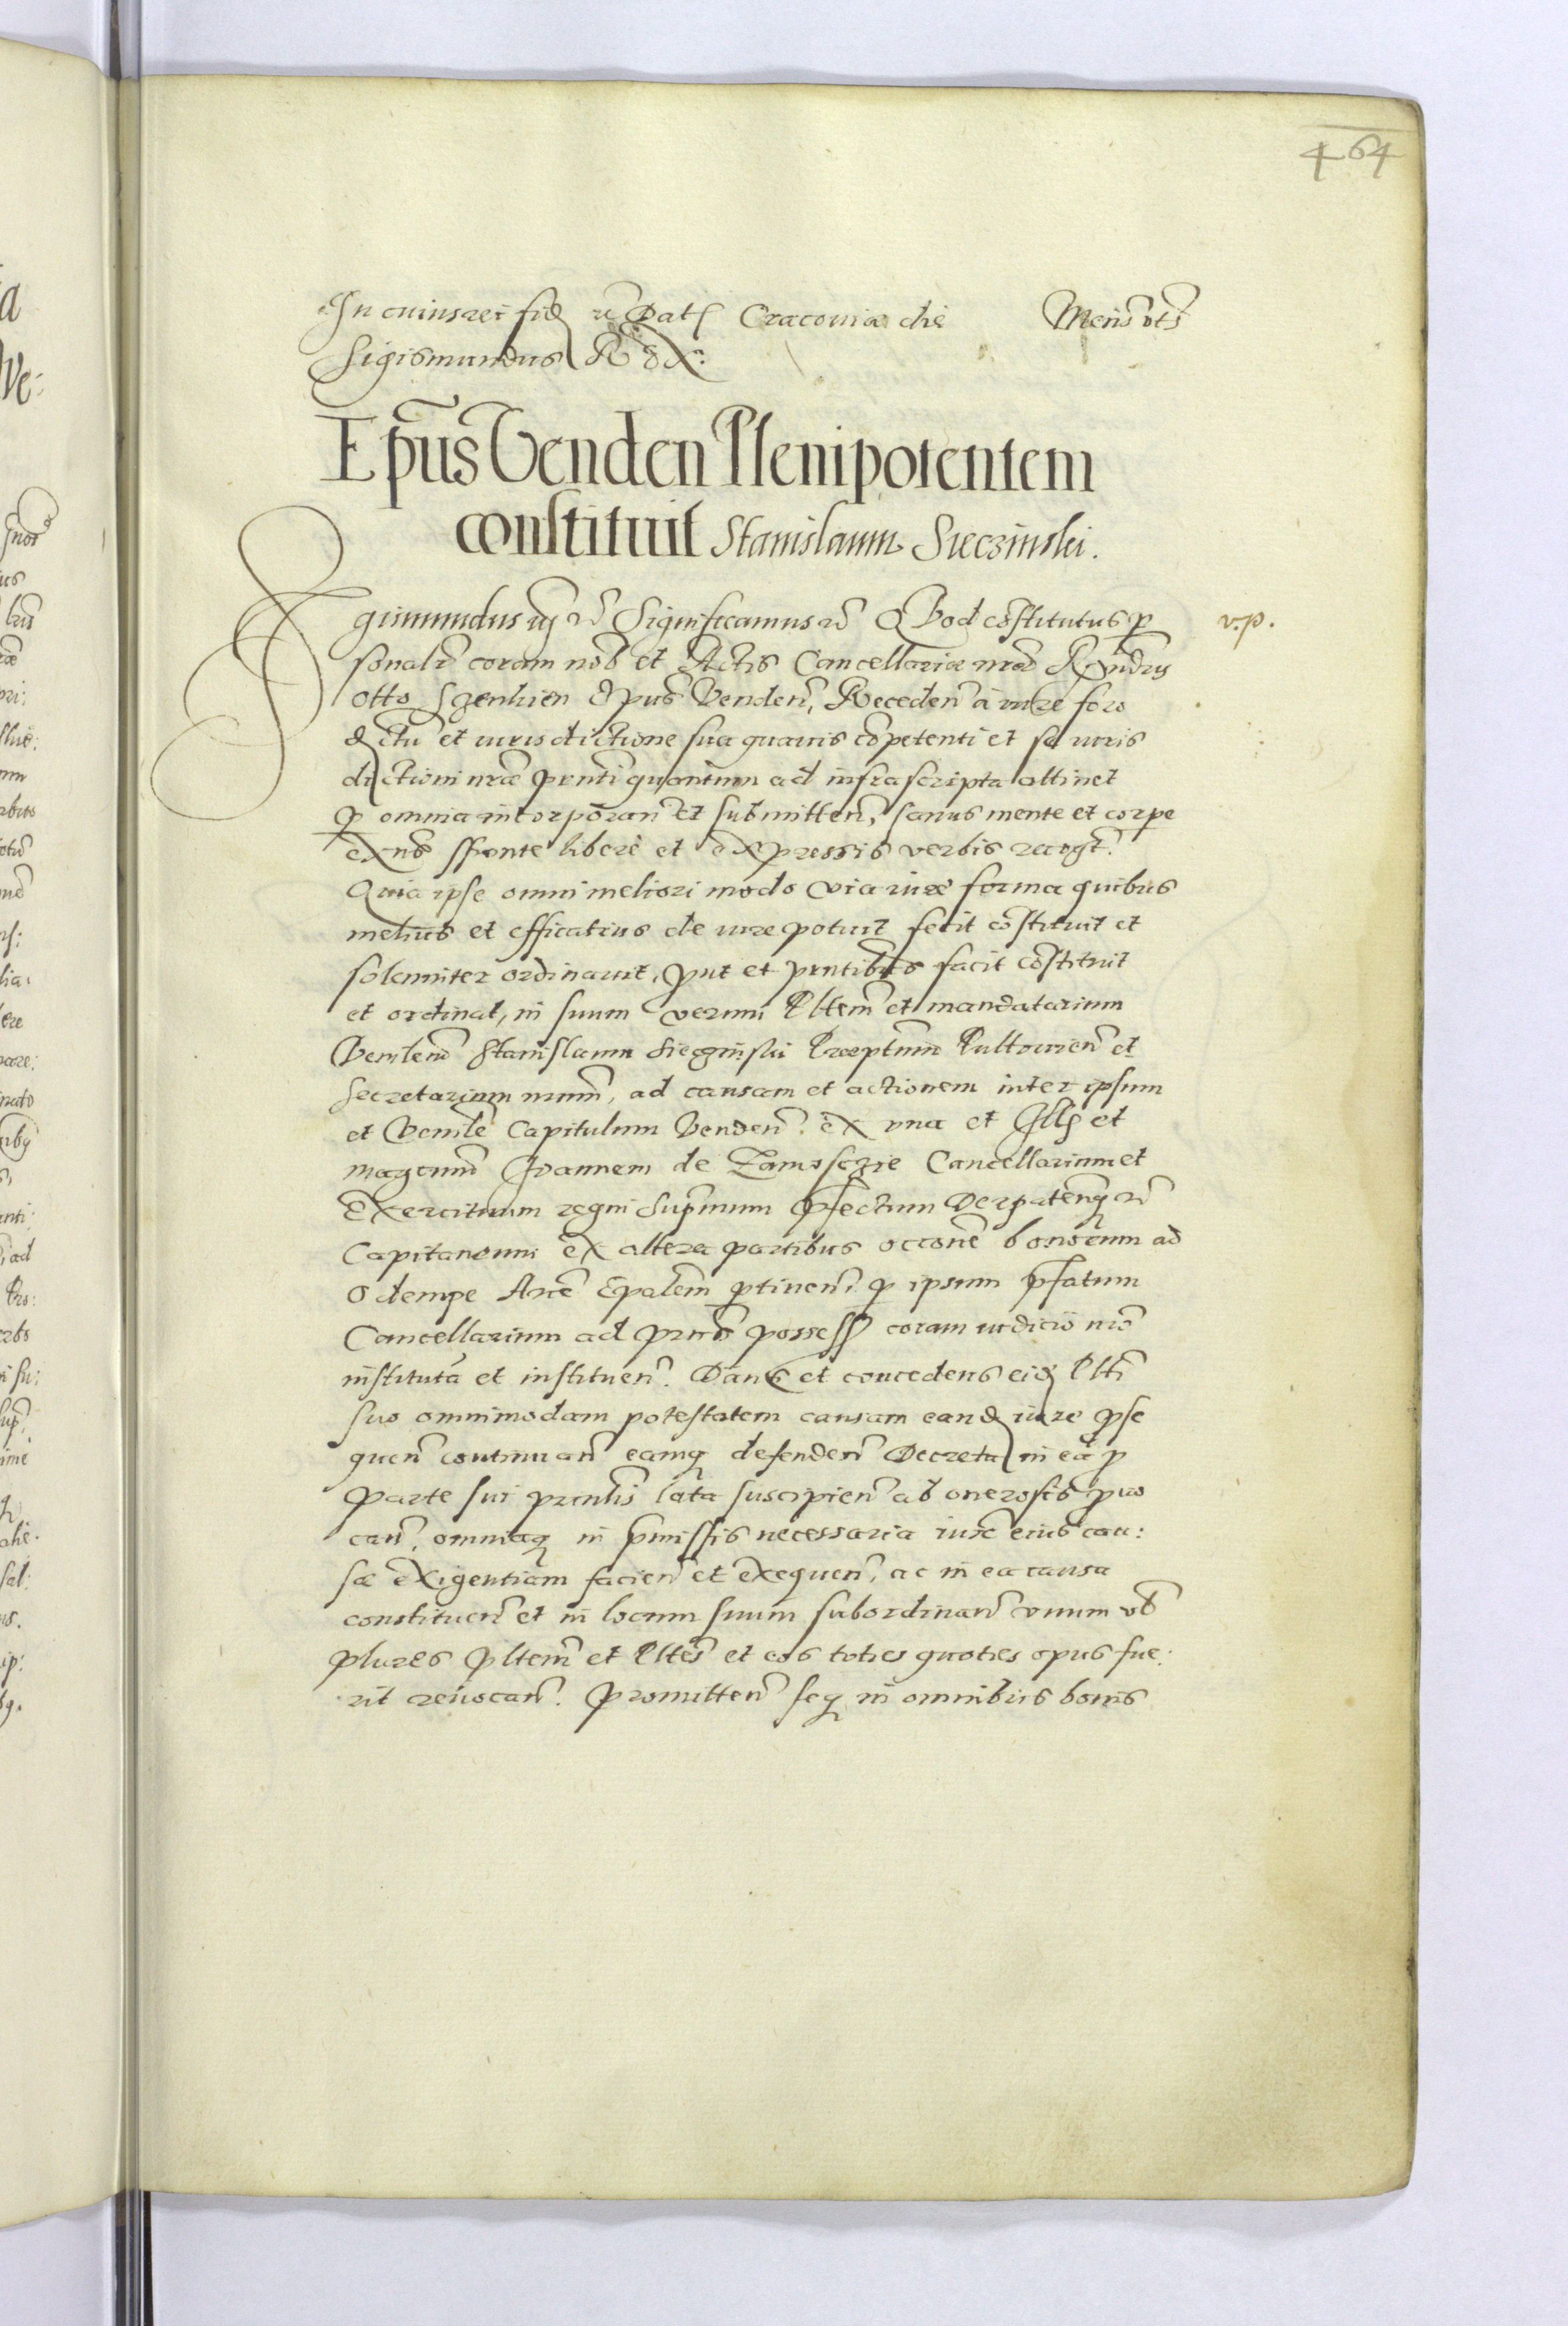 464
In cuius rei fid. etc Dat. Cracoviæ die Mens. ots
Sigismundus Rex.
Epus Venden Plenipotentem
constituit Stanislaum Sieczinski.
Sigismundus iij etc Significamus etc Quod cõstitutus p
sonalr coram nob et Actis Cancellariæ nræ Rndus
Otto Sgenkien Epus Venden, Receden à iure foro
dctu et iurisdictione sua quavis cõpetenti et se iuris
dictioni nræ pnti quantum ad infrascripta attinet
p omnia incorporan et submitten, sanus mente et corpe
exns sponte liberè et expressis verbis recogt.
Quia ipse omni meliori modo via iure forma quibus
melius et efficatius de iure potuit fecit cõstituit et
solemniter ordinavit, put et pntibus facit cõstituit
et ordinat, in suum verum Pltem et mandatarium
Venlem Stanislaum Sieczinski Præptum Pultovien et
Secretarium nrum, ad causam et actionem inter ipsum
et Venle Capitulum Venden. ex una et Ills et
magcum Joannem de Zamosczie Cancellarium et
Exercituum regni Supmum Pfectum Derpatenq etc
Capitaneum ex altera partibus occone bonorum ad
Odempe Arce Epalem ptinen, p ipsum pfatum
Cancellarium ad prns possess coram iudicio nro
instituta et instituen. Dans et concedens eid Plti
suo omnimodam potestatem causam eand iure pse
quen continuan eamq defenden Decreta in ea p
parte sui prinlis lata suscipien ab onerosis pvo
can, omniaq in pmissis necessaria iuxe eius cau:
sæ exigentiam facien et exequen, ac in ea causa
constituen et in locum suum subordinan unum vl
plures Pltem et Pltes et eos toties quoties opus fue:
rit revocan. Promitten seq in omnibus bonis
v.p.